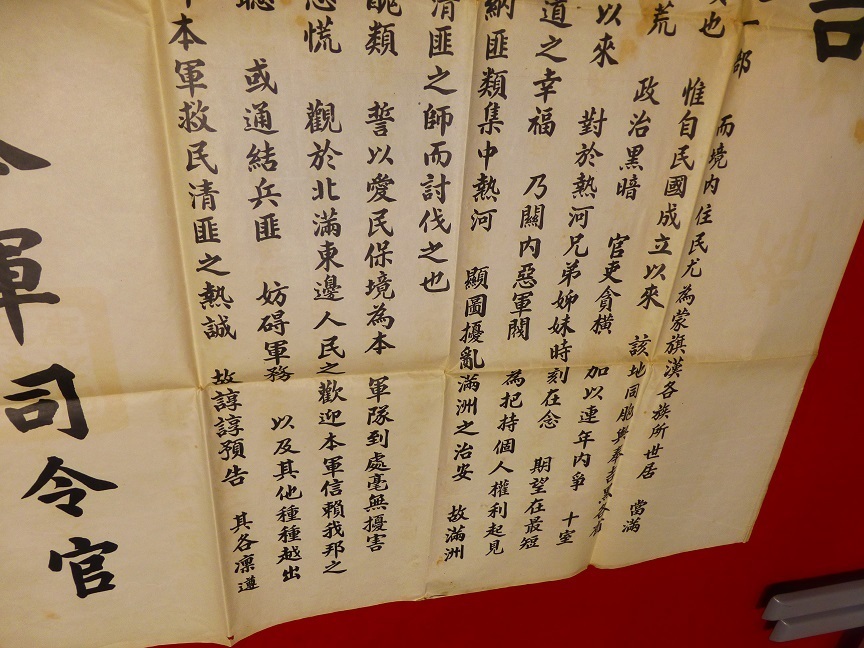 告
一部 而境内住民尤為蒙旗漢各族所世居 當滿
也 惟自民國成立以來 該地同胞與奉吉黑各省
荒 政治黑暗 官吏貪橫 加以連年内爭 十室
以來 對於熱河兄弟姊妹時刻在念 期望在最短
道之幸福 乃關内惡軍閥 為把持個人權利起見
納匪類集中熱河 顯圖擾亂滿洲之治安 故滿洲
清匪之師而討伐之也
醜類 誓以愛民保境為本 軍隊到處毫無擾害
恐慌 觀於北滿東邊人民之歡迎本軍信賴我邦之
聽 或通結兵匪 妨碍軍務 以及其他種種越出
本軍救民清匪之熱誠 故諄諄預告 其各凛遵
軍司令官